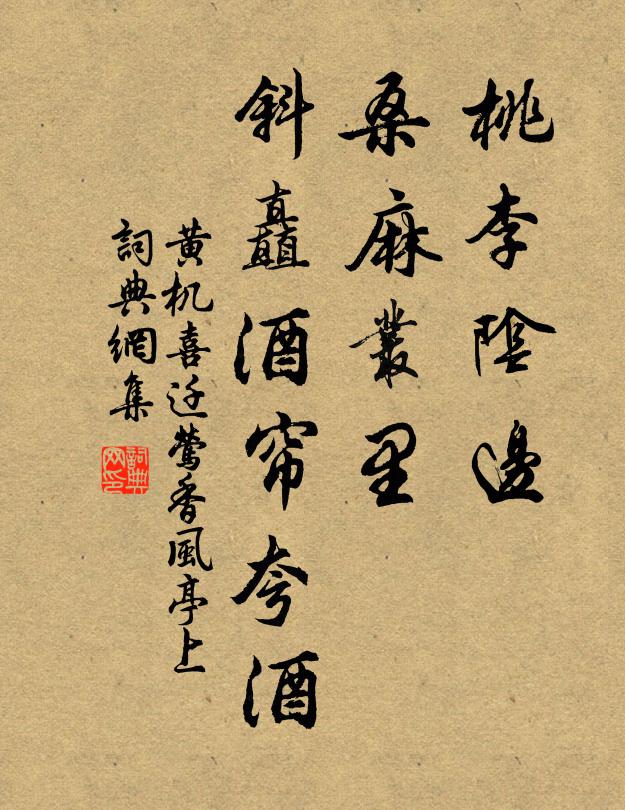 桃李陰邊
桑麻叢里
斜矗酒帘夸酒
黄机喜迁莺香風亭上
詞典網集
詞典网印